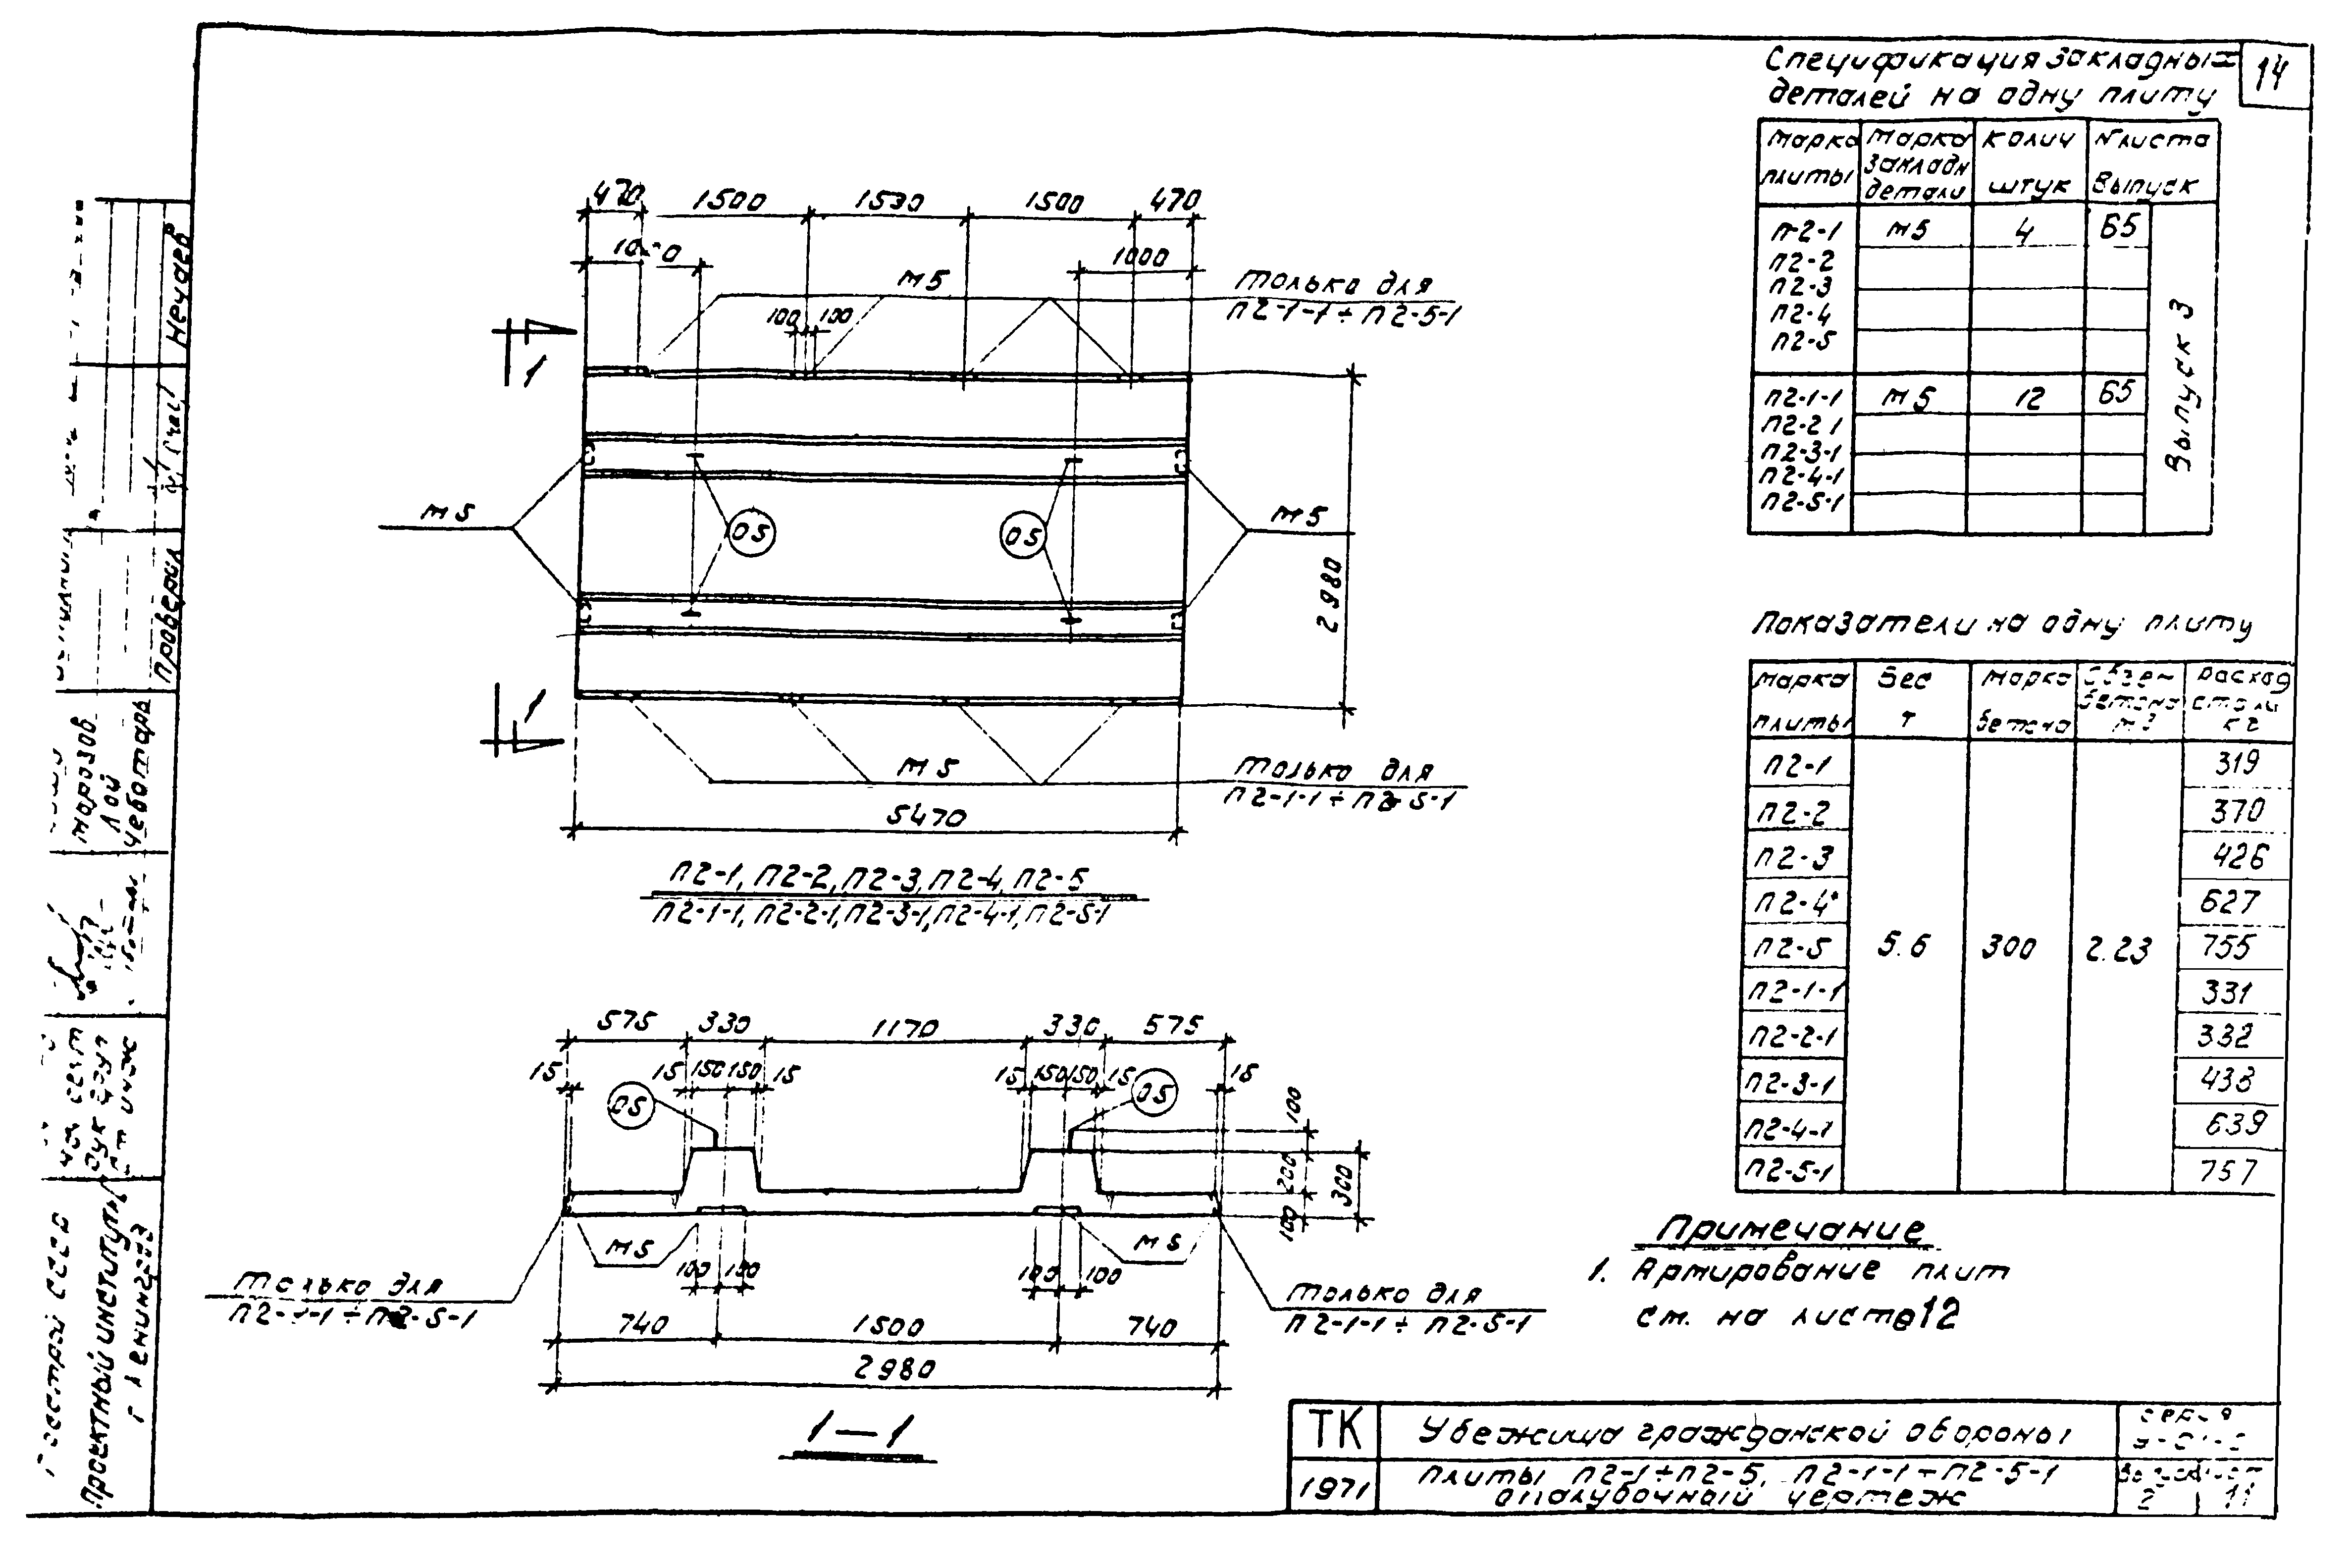 14
Спецификация закладных
деталей на одну плиту
Марка плиты | Марка закладн детали | Колич штук | № листа Выпуск
П-2-1 | М5 | 4 | 65
П2-2
П2-3
П2-4
П2-5
П2-1-1 | М5 | 12 | 65
П2-2 1
П2-3-1
П2-4-1
П2-5-1
Выпуск 3
470 1500 1530 1500 470
1000
М5
только для
П2-1-1 ÷ П2-5-1
100 100
1
М5
05
05
М5
2980
1
М5
только для
П2-1-1 ÷ П2-5-1
5470
П2-1, П2-2, П2-3, П2-4, П2-5
П2-1-1, П2-2-1, П2-3-1, П2-4-1, П2-5-1
Показатели на одну плиту
Марка плиты | Вес т | Марка бетона | Объем бетона м3 | Расход стали кг
П2-1 | 319
П2-2 | 370
П2-3 | 426
П2-4 | 627
П2-5 | 5.6 | 300 | 2.23 | 755
П2-1-1 | 331
П2-2-1 | 332
П2-3-1 | 438
П2-4-1 | 639
П2-5-1 | 757
575 330 1170 330 575
15 15 150 150 15 15 150 150 15 15
05
05
100
200
300
100
М5
М5
100 100
100 100
только для
П2-1-1 ÷ П2-5-1
только для
П2-1-1 ÷ П2-5-1
740 1500 740
2980
1-1
Примечание
1. Армирование плит
см. на листе 12
ТК
Убежища гражданской обороны
серия
1971
плиты П2-1÷П2-5, П2-1-1÷П2-5-1
опалубочный чертеж
2
11
Нечаев
Проверил
Морозов
Лой
Чеботарь
Госстрой СССР
Проектный институт
г Ленинград